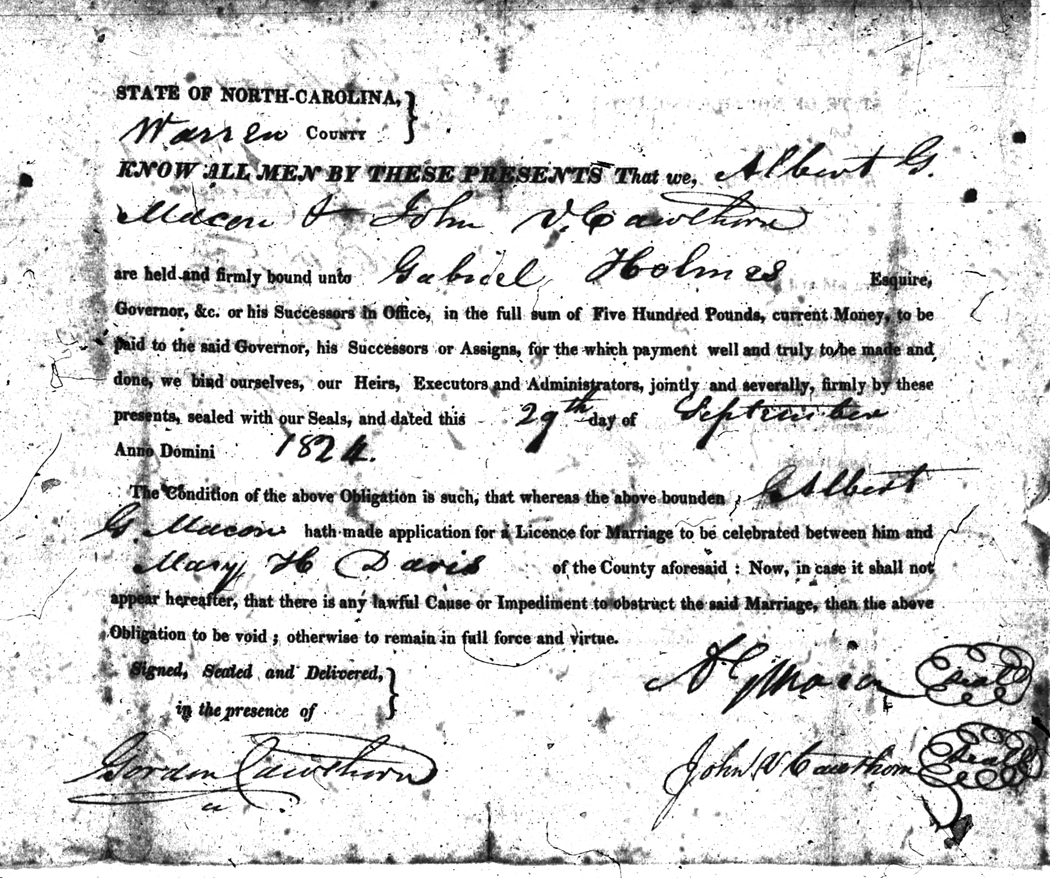 STATE OF NORTH-CAROLINA, }
Warren COUNTY
KNOW ALL MEN BY THESE PRESENTS That we, Albert G.
Macon & John V. Cawthorn
are held and firmly bound unto Gabriel Holmes Esquire,
Governor, &c. or his Successors in Office, in the full sum of Five Hundred Pounds, current Money, to be
paid to the said Governor, his Successors or Assigns, for the which payment well and truly to be made and
done, we bind ourselves, our Heirs, Executors and Administrators, jointly and severally, firmly by these
presents, sealed with our Seals, and dated this 29th day of September
Anno Domini 1824.
The Condition of the above Obligation is such, that whereas the above bounden Albert
G. Macon hath made application for a Licence for Marriage to be celebrated between him and
Mary H Davis of the County aforesaid : Now, in case it shall not
appear hereafter, that there is any lawful Cause or Impediment to obstruct the said Marriage, then the above
Obligation to be void ; otherwise to remain in full force and virtue.
Signed, Sealed and Delivered, }
in the presence of
A G Macon Seal
Gordon Cawthorn
John V Cawthorn Seal